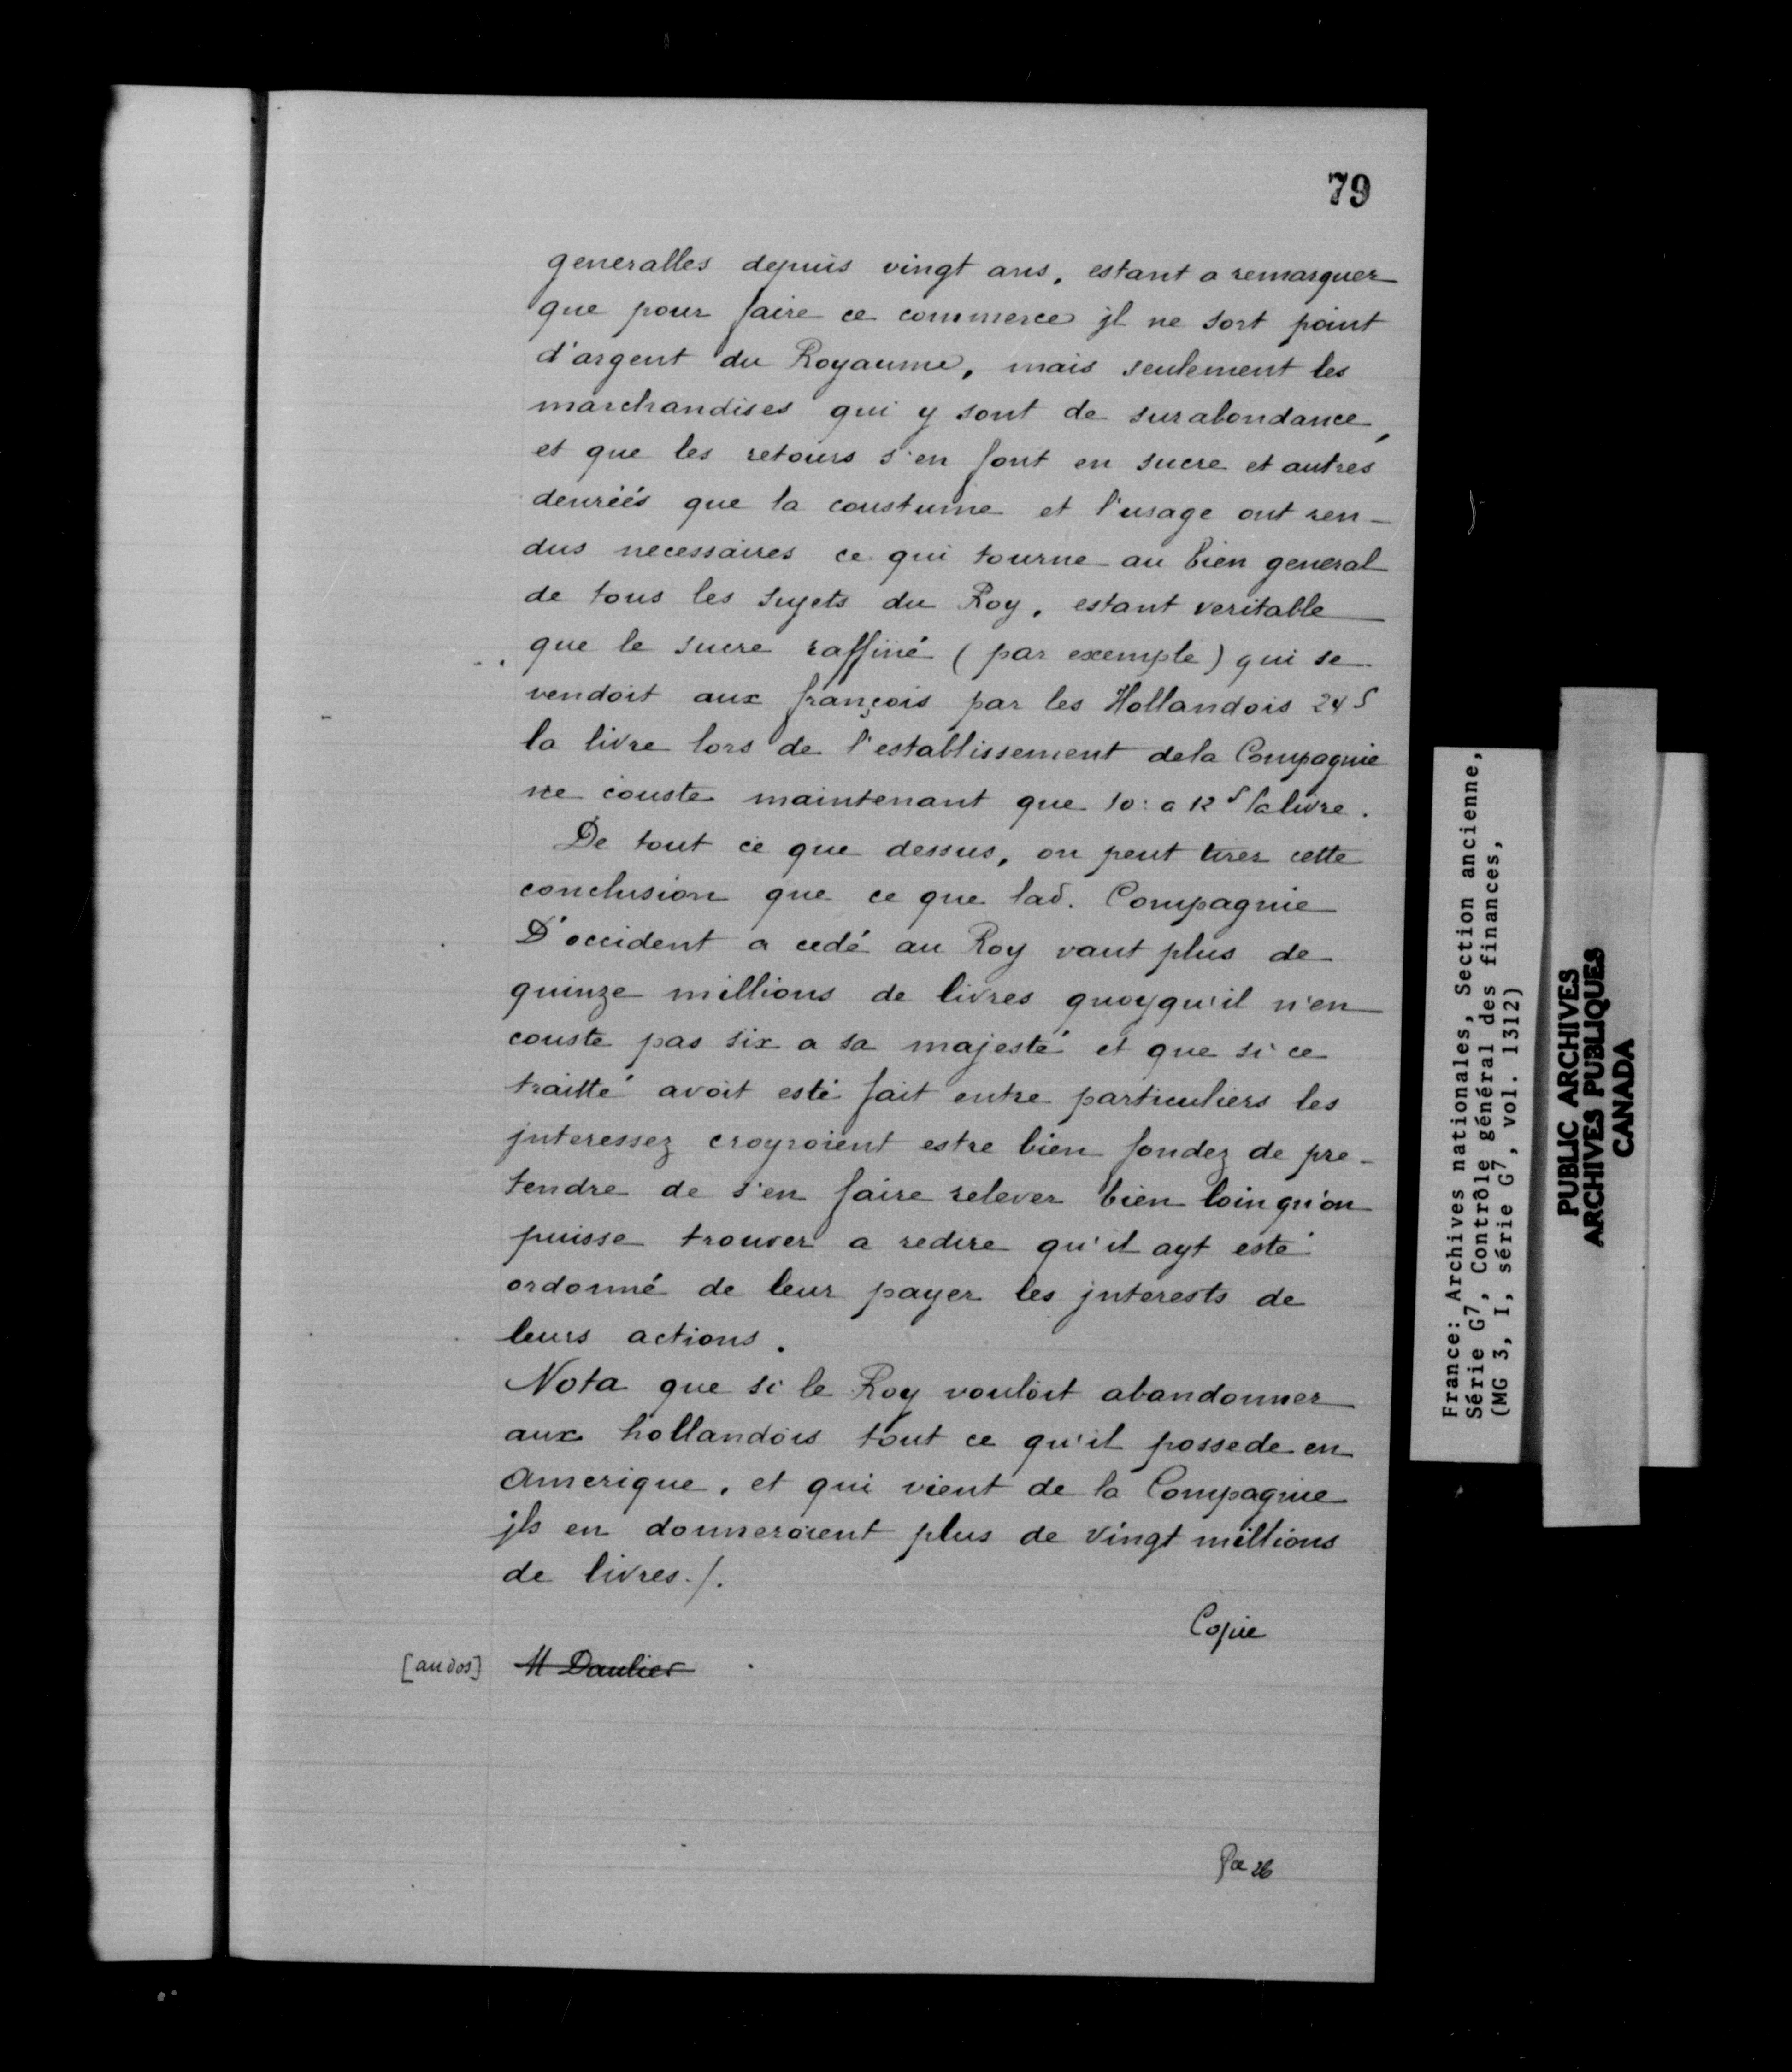 79
generalles depuis vingt ans, estant a remarquer
que pour faire ce commerce jl ne sort point
d'argent du Royaume, mais seulement les
marchandises qui y sont de surabondance,
et que les retours s'en font en sucre et autres
denréés que la coustume et l'usage ont ren-
dus necessaires ce qui tourne au bien general
de tous les sujets du Roy, estant veritable
que le sucre raffiné (par exemple) qui se
vendoit aux françois par les Hollandois 24 s
la livre lors de l'establissement dela Compagnie
ne couste maintenant que 10: a 12 s la livre.
De tout ce que dessus, on peut tirer cette
conclusion que ce que lad. Compagnie
D'occident a cedé au Roy vaut plus de
quinze millions de livres quoyqu'il n'en
couste pas six a sa majesté et que si ce
traitté avoit esté fait entre particuliers les
jnteressez croyroient estre bien fondez de pre-
tendre de s'en faire relever bien loin qu'on
puisse trouver a redire qu'il ayt esté
ordonné de leur payer les jnterests de
leurs actions.
Nota que si le Roy vouloit abandonner
aux hollandois tout ce qu'il possede en
Amerique, et qui vient de la Compagnie
jls en donneroient plus de vingt millions
de livres./.
Copie
[au dos] M Daulier
26
France: Archives nationales, Section ancienne,
Série G7, Contrôle général des finances,
(MG 3, I, série G7, vol. 1312)
PUBLIC ARCHIVES
ARCHIVES PUBLIQUES
CANADA